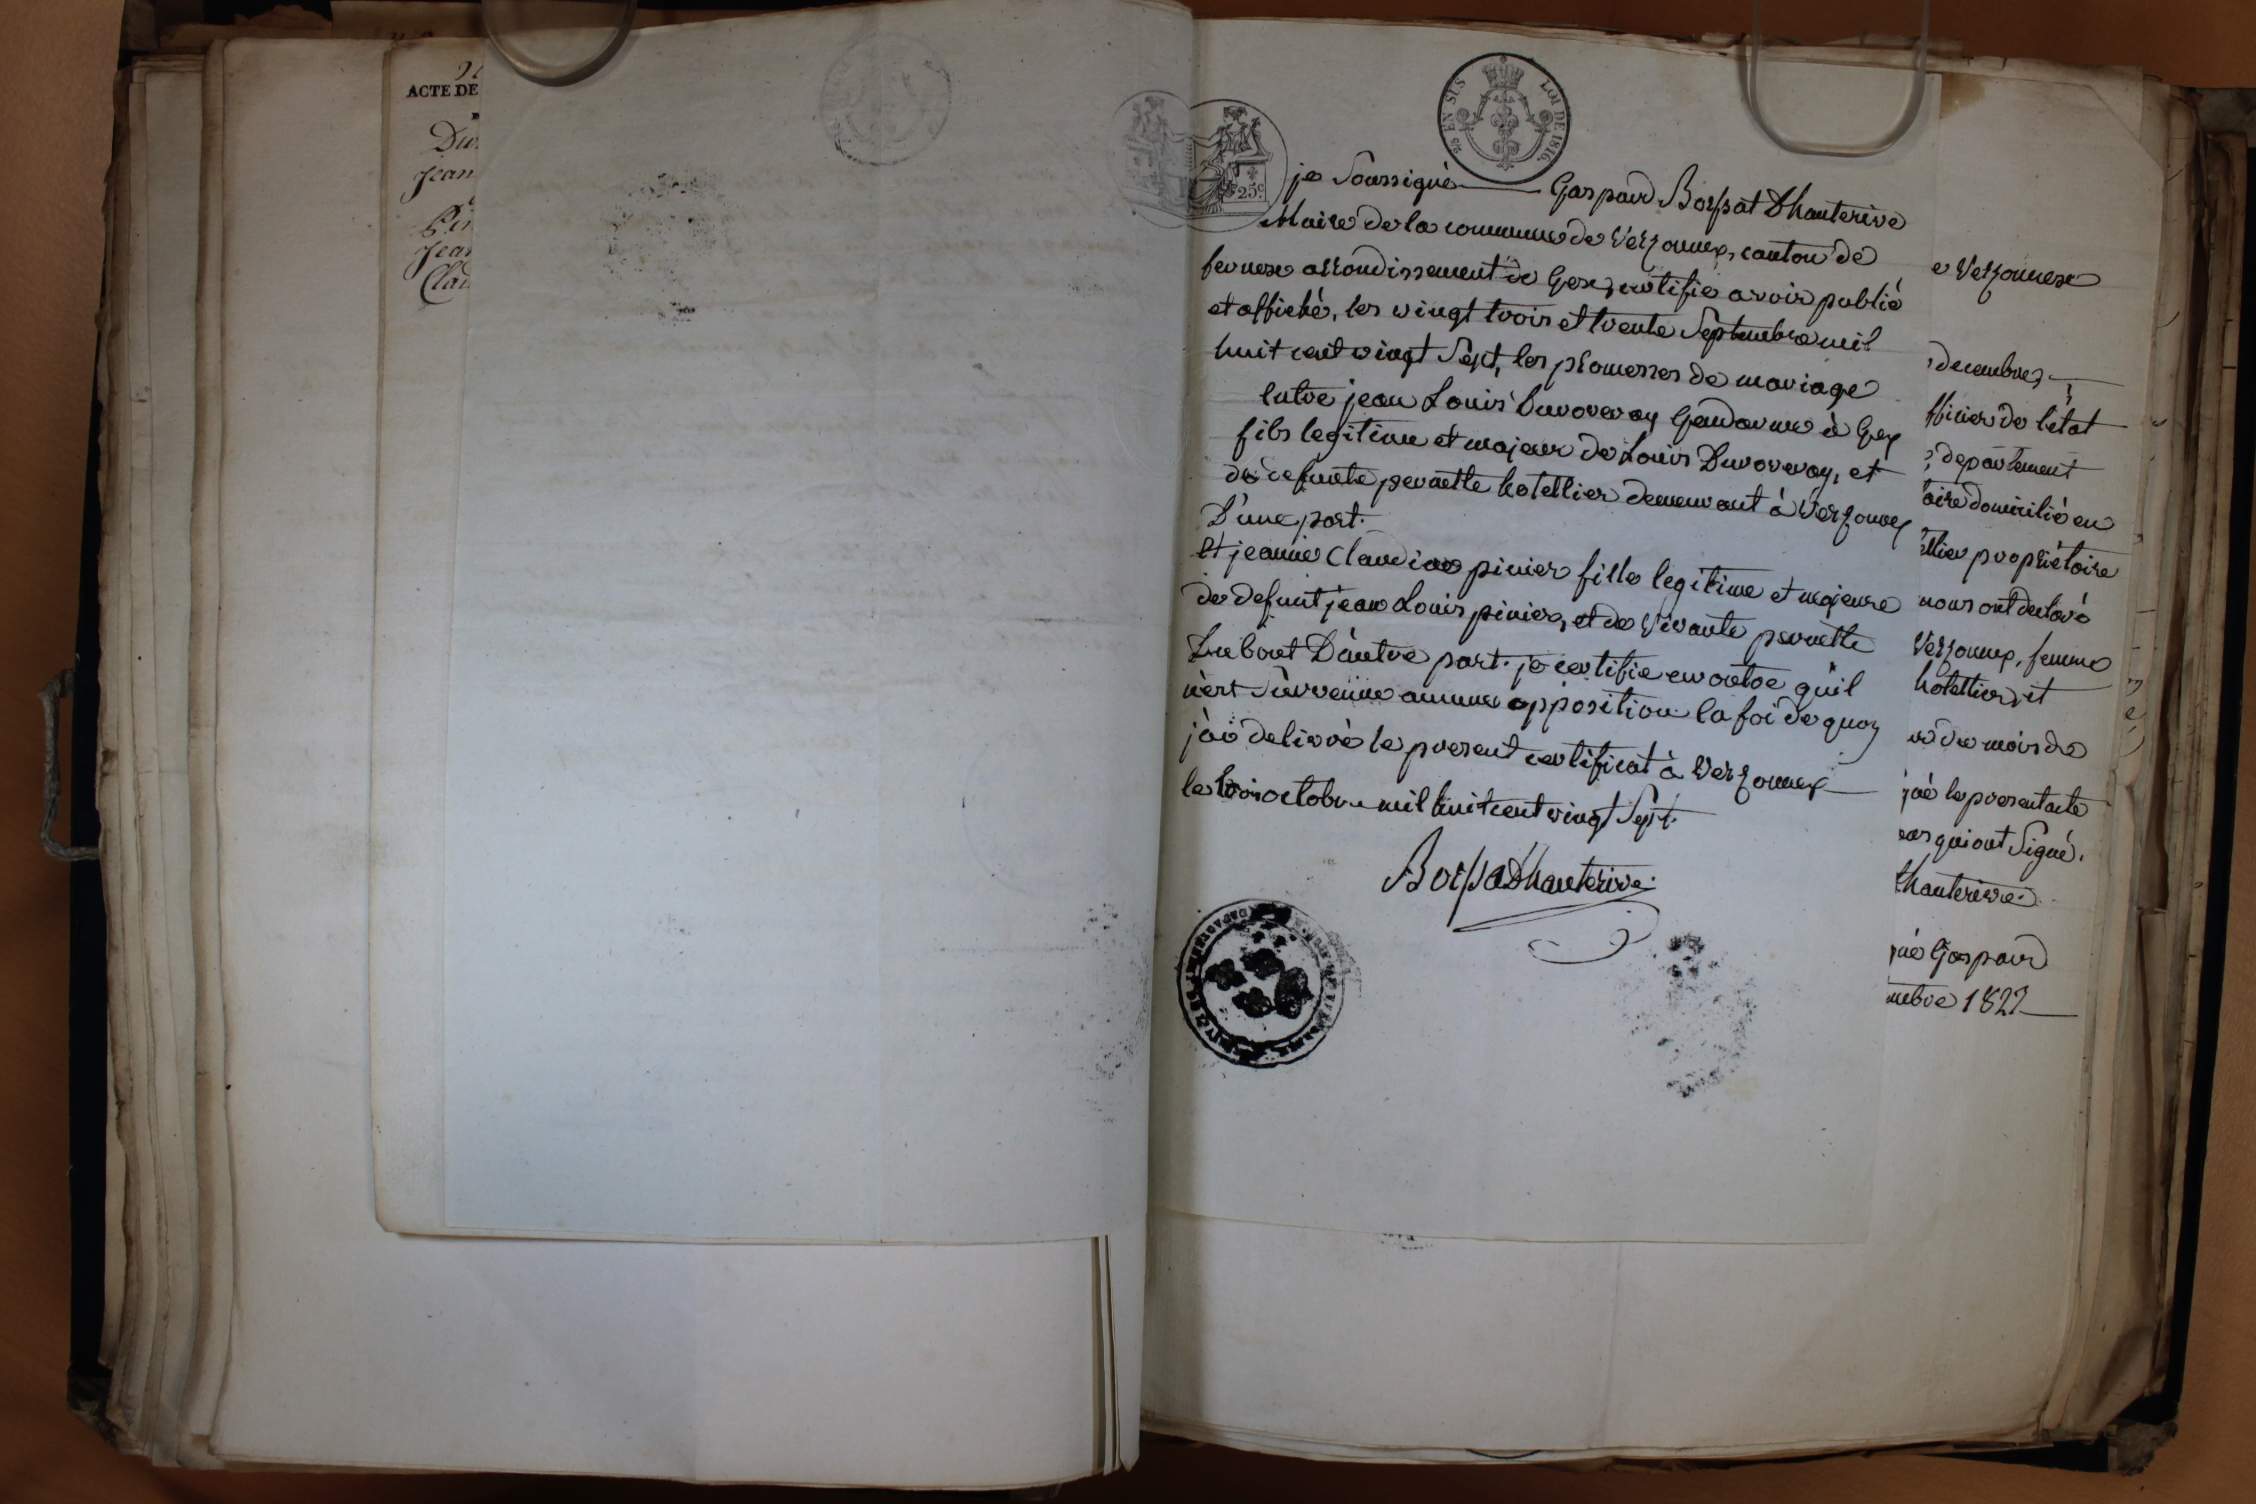 ACTE DE
Jean
Jean
25 EN SUS
LOI DE 1816.
25c
je Soussigné Gaspard Boissat Dhauterive
Maire de la commune de Versonnex, canton de
fernex arrondissement de Gex, certifie avoir publié
et affiché, les vingt trois et trente Septembre mil
huit cent vingt Sept, les promesses de mariage
Entre jean Louis Duvoveray Gendarme à Gex
fils legitime et majeur de Louis Duvoveray, et
de defunte pernette hotellier demeurant à Versonnex
D'une part.
Et jeanne Claudine pinier fille legitime et majeure
de defunt jean Louis pinier, et de vivante pernette
Dubout D'autre part. je certifie en outre qu'il
n'est Survenue aucune opposition. la foi de quoy
j'ai delivré le present certificat à Versonnex
le trois octobre mil huit cent vingt Sept.
Boissat Dhauterive
e Versonnex
decembre,
fficier de l'état
departement
toire domicilié en
ellier propriétaire
nous ont declaré
Versonnex, femme
hotellier, et
du mois de
le present acte
qui ont Signé.
hauterive.
né Gaspard
mbre 1827